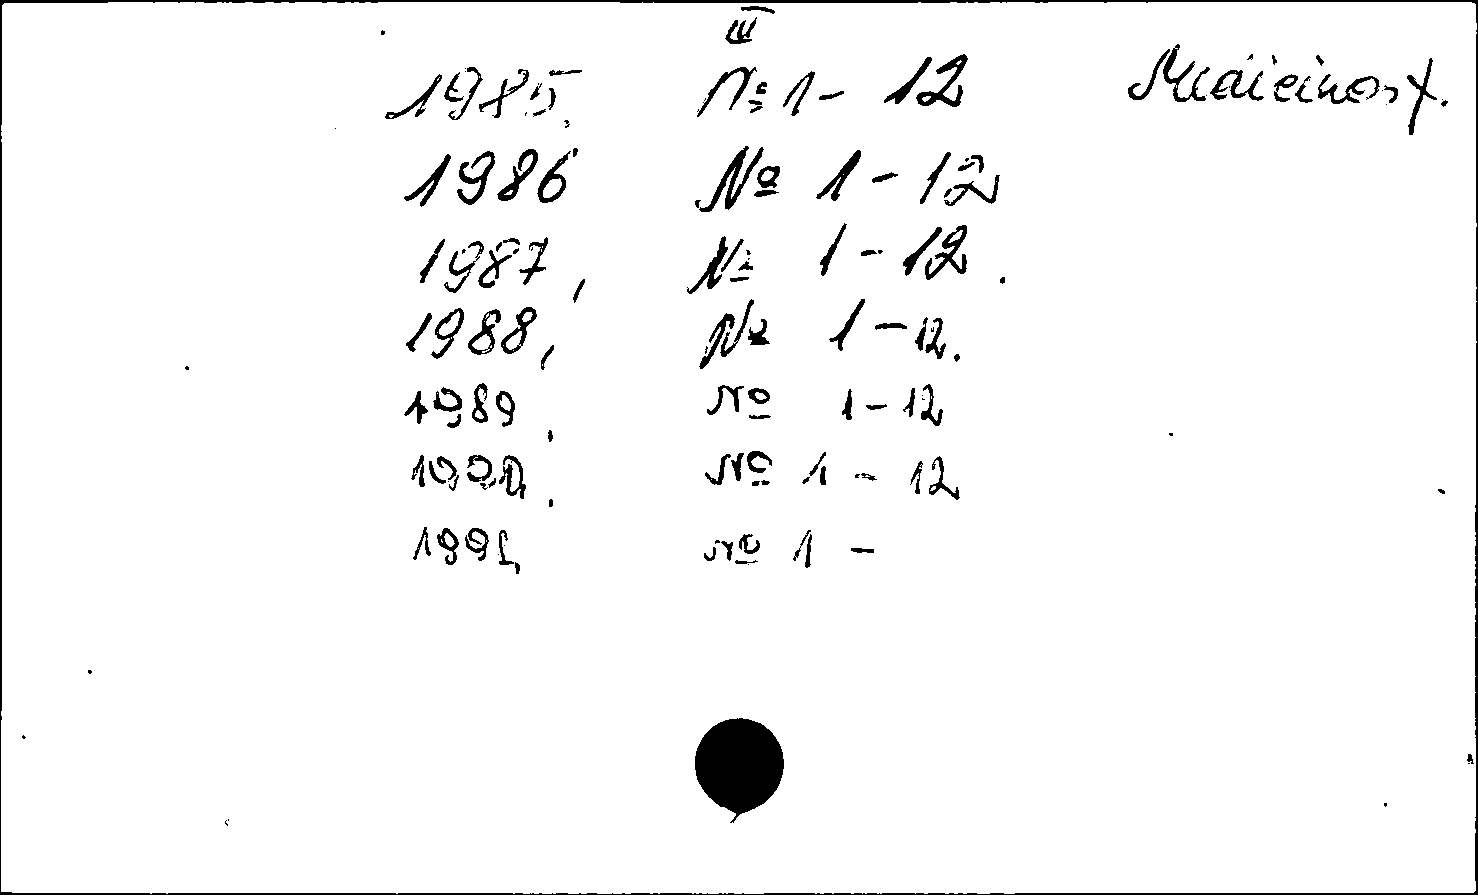 III
1985. № 1 - 12
1986 № 1 - 12
1987, № 1 - 12.
1988, № 1 - 12.
1989. № 1 - 12
1990. № 1 - 12
1991, № 1 -